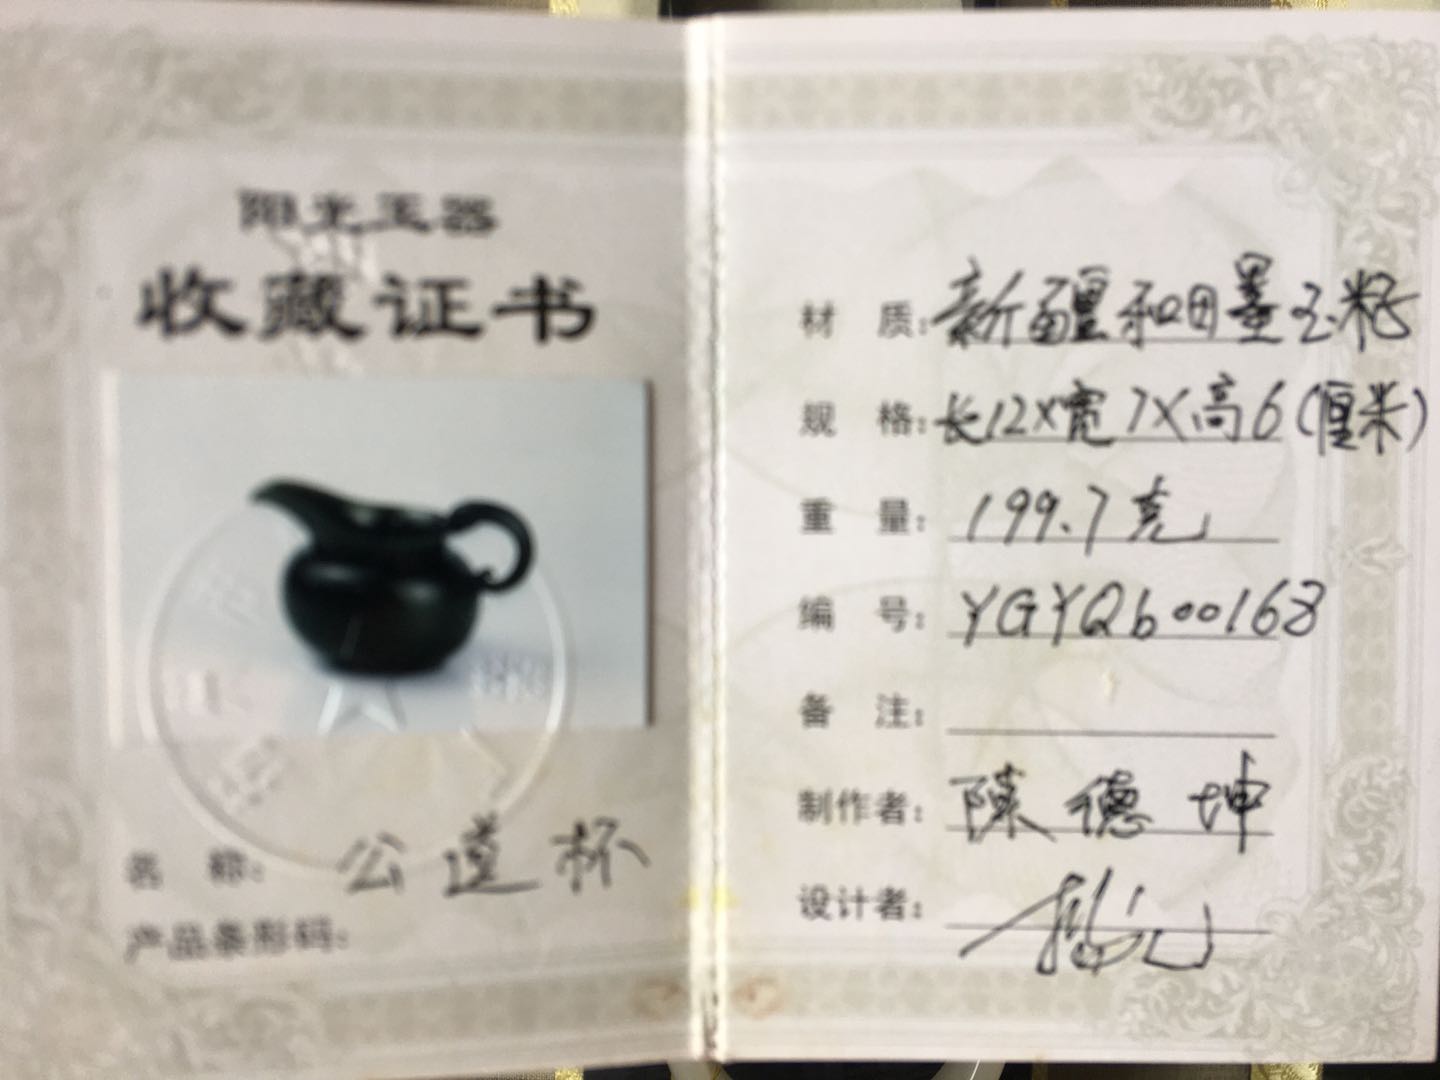 阳光玉器
收藏证书
名 称: 公道杯
产品条形码:
材 质: 新疆和田墨玉籽
规 格: 长12X宽7X高6(厘米)
重 量: 199.7克
编 号: YGYQb00168
备 注:
制作者: 陳德坤
设计者: